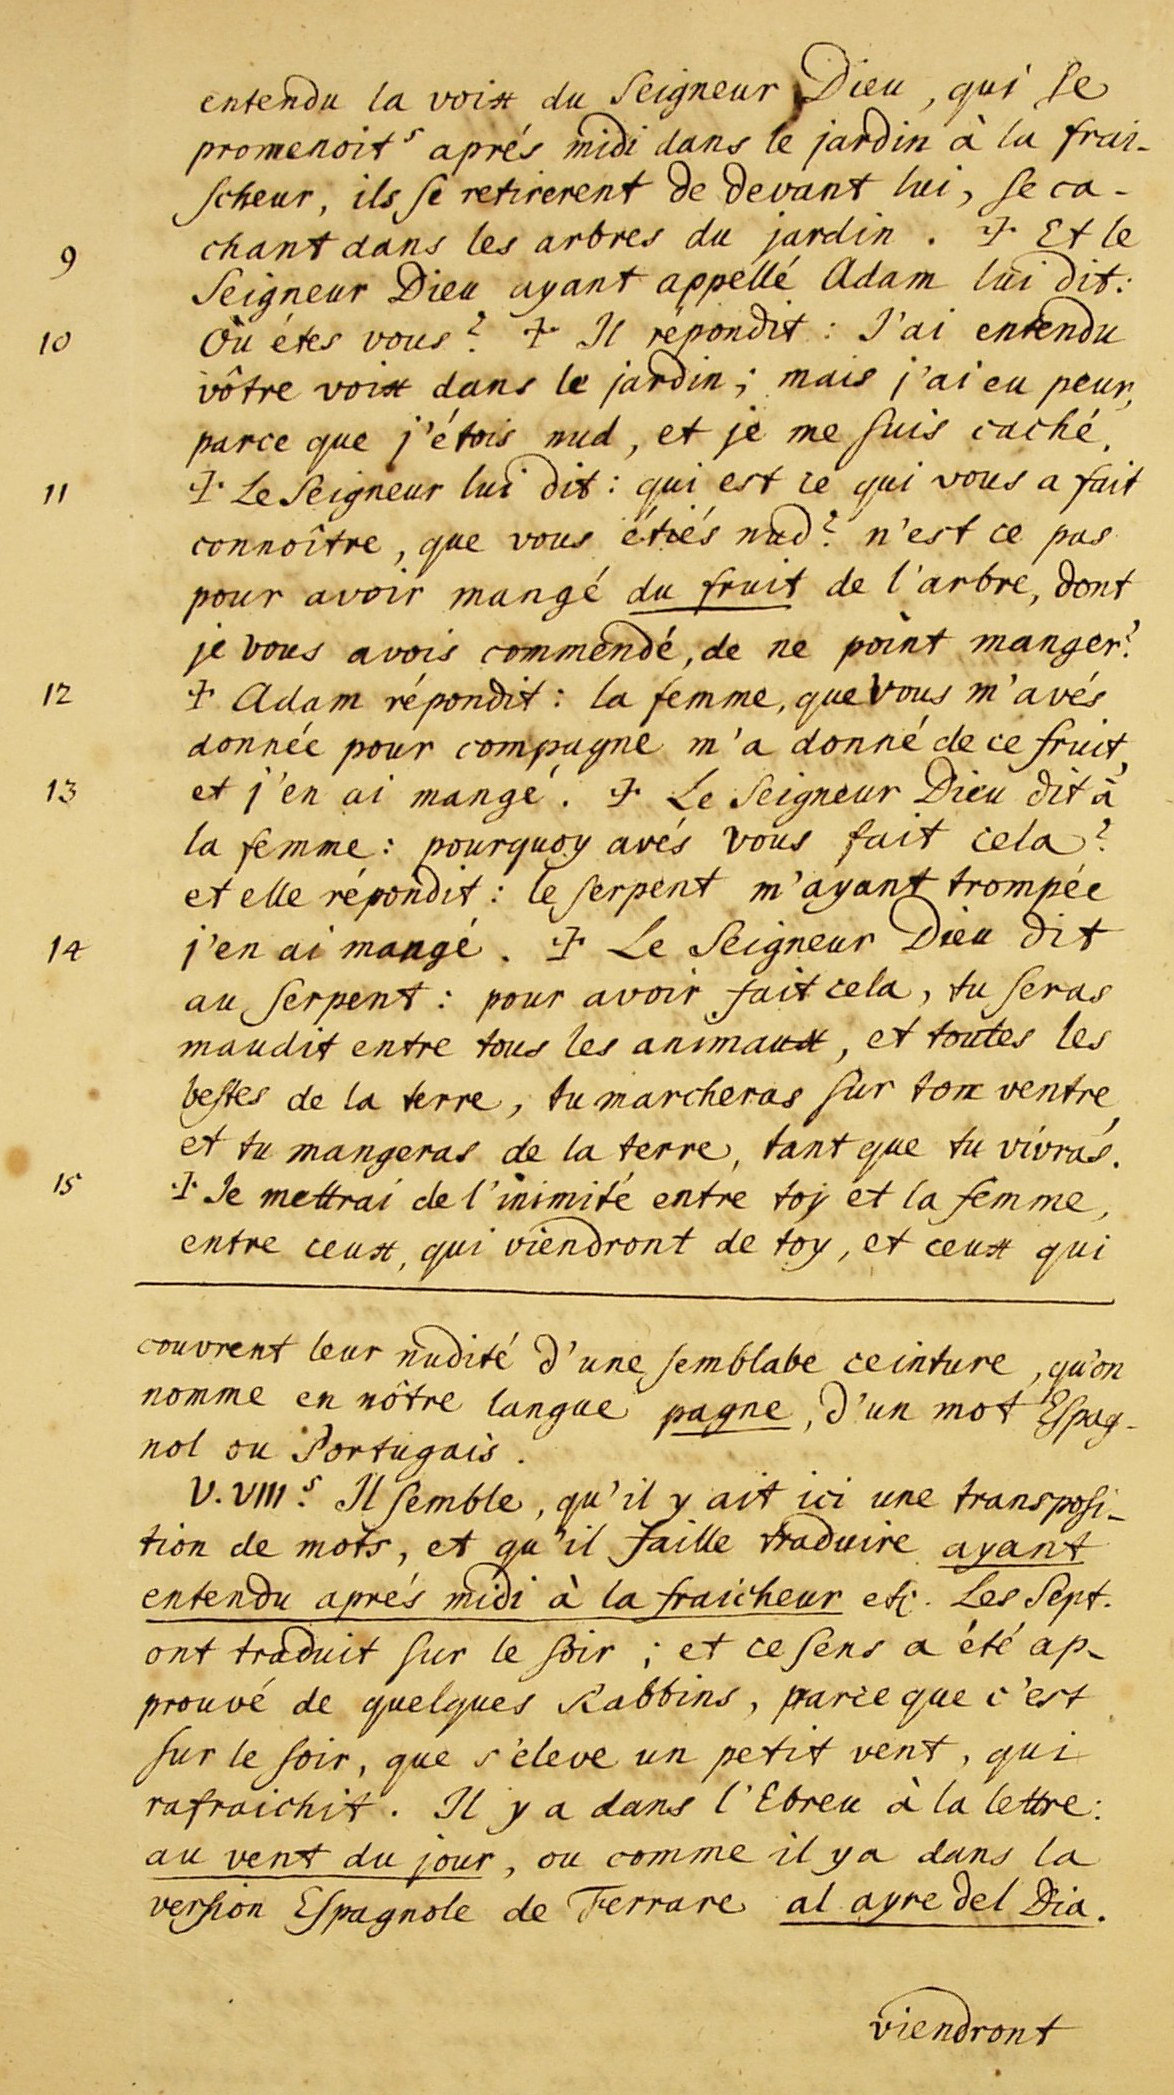 entendu la voix du Seigneur Dieu, qui se
promenoit s aprés midi dans le jardin à la frai-
scheur, ils se retirerent de devant lui, se ca-
9 chant dans les arbres du jardin. ✢ Et le
Seigneur Dieu ayant appellé Adam lui dit:
10 Où étes vous? ✢ Il répondit: J'ai entendu
vôtre voix dans le jardin; mais j'ai eu peur,
parce que j'étois nud, et je me suis caché.
11 ✢ Le Seigneur lui dit: qui est ce qui vous a fait
connoître, que vous étiés nud? n'est ce pas
pour avoir mangé du fruit de l'arbre, dont
je vous avois commendé, de ne point manger?
12 ✢ Adam répondit: la femme, que vous m'avés
donnée pour compagne m'a donné de ce fruit,
13 et j'en ai mangé. ✢ Le Seigneur Dieu dit à
la femme: pourquoy avés vous fait cela?
et elle répondit: le serpent m'ayant trompée
14 j'en ai mangé. ✢ Le Seigneur Dieu dit
au serpent: pour avoir fait cela, tu seras
maudit entre tous les animaux, et toutes les
bestes de la terre, tu marcheras sur ton ventre,
et tu mangeras de la terre, tant que tu vivras.
15 ✢ Je mettrai de l'inimité entre toy et la femme,
entre ceux, qui viendront de toy, et ceux qui
couvrent leur nudité d'une semblabe ceinture, qu'on
nomme en nôtre langue pagne, d'un mot Espag-
nol ou Portugais.
V. VIII. s Il semble, qu'il y ait ici une transposi-
tion de mots, et qu'il faille traduire ayant
entendu aprés midi à la fraicheur etc. Les Sept.
ont traduit sur le soir; et ce sens a été ap-
prouvé de quelques Rabbins, parce que c'est
sur le soir, que s'eleve un petit vent, qui
rafraichit. Il y a dans l'Ebreu à la lettre:
au vent du jour, ou comme il y a dans la
version Espagnole de Ferrare al ayre del Dia.
viendront